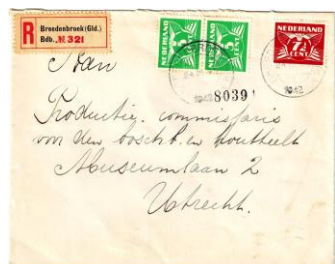 Breedenbroek (Gld.)
R
Bdb. № 321
NEDERLAND
NEDERLAND
NEDERLAND
5
5
7½
CENT
CENT
1942
1942
80391
Aan
Productie-commissaris
voor den bosch- en houtteelt
Museumlaan 2
Utrecht.